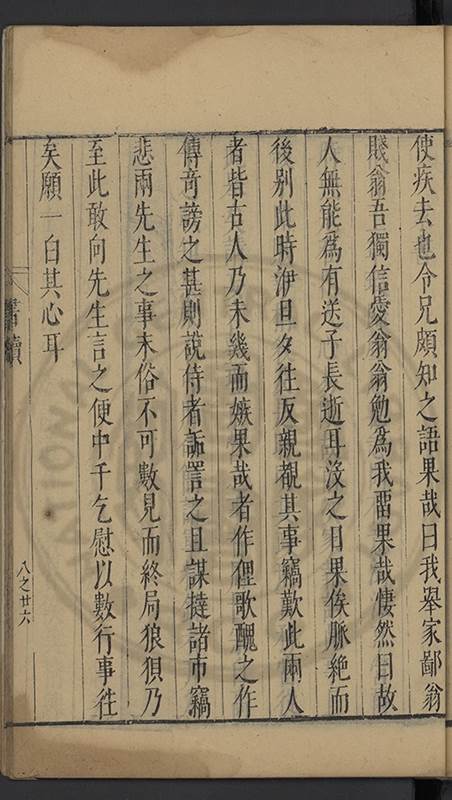 使疾去也令兄頗知之語果哉曰我舉家鄙翁
賤翁吾獨信愛翁翁勉爲我畱果哉悽然曰故
人無能爲有送子長逝耳沒之日果俟脈絶而
後别此時洢旦夕往反親覩其事竊歎此兩人
者皆古人乃未幾而嫉果哉者作俚歌醜之作
傳奇謗之甚則說侍者詬詈之且謀撻諸市竊
悲兩先生之事末俗不可數見而終局狼狽乃
至此敢向先生言之便中千乞慰以數行事徃
矣願一白其心耳
書牘
八之廿六